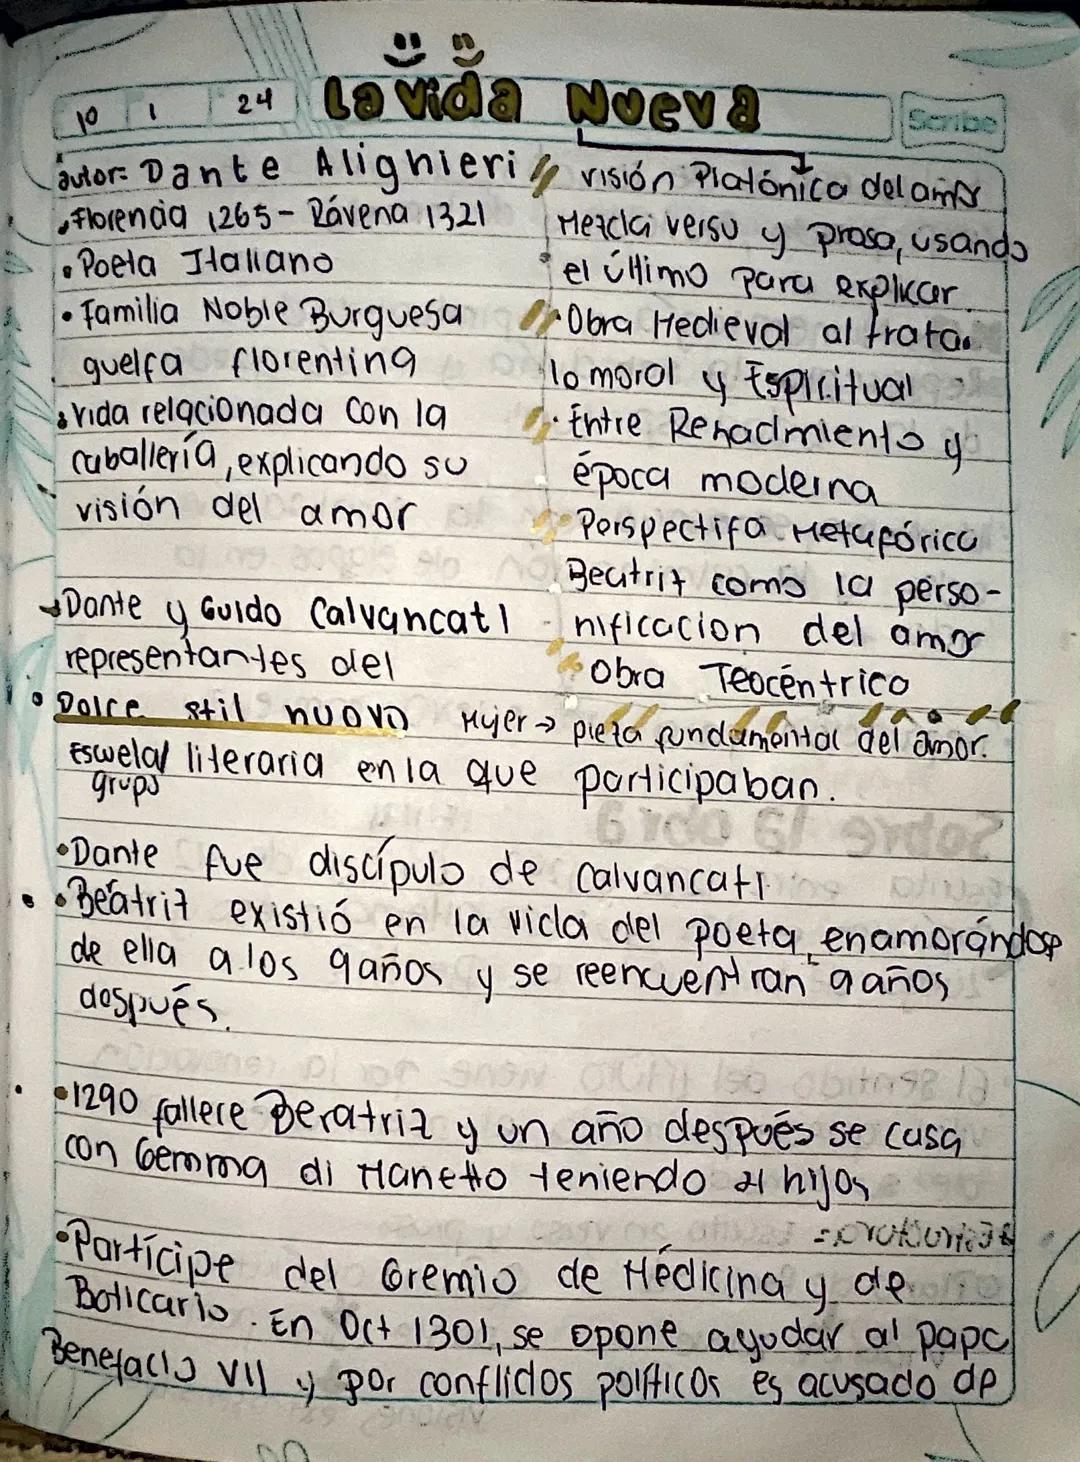 La Vida Nueva
10 1 24
Scribe
autor: Dante Alighieri
Florencia 1265 - Rávena 1321
• Poeta Italiano
• Familia Noble Burguesa
guelfa florentina
• Vida relacionada con la
caballería, explicando su
visión del amor
→ Dante y Guido Calvancati
representantes del
• Dolce stil nuovo
visión Platónica del amor
Mezcla verso y prosa, usando
el último para explicar
• Obra Medieval al tratar
lo moral y Espiritual
• Entre Renacimiento y
época moderna
• Perspectifa Metafórica
Beatriz como la perso-
nificacion del amor
• Obra Teocéntrica
Mujer → pieza fundamental del amor.
Escuela/ literaria en la que participaban.
grupo
• Dante fue discípulo de Calvancati
• Beatriz existió en la vida del poeta, enamorándose
de ella a los 9 años y se reencuentran 9 años
después.
• 1290 fallece Beratriz y un año después se casa
con Gemma di Manetto teniendo 4 hijos
• Partícipe del Gremio de Médicina y de
Boticario. En Oct 1301, se opone ayudar al papa
Benefacio VII y por conflictos políticos es acusado de